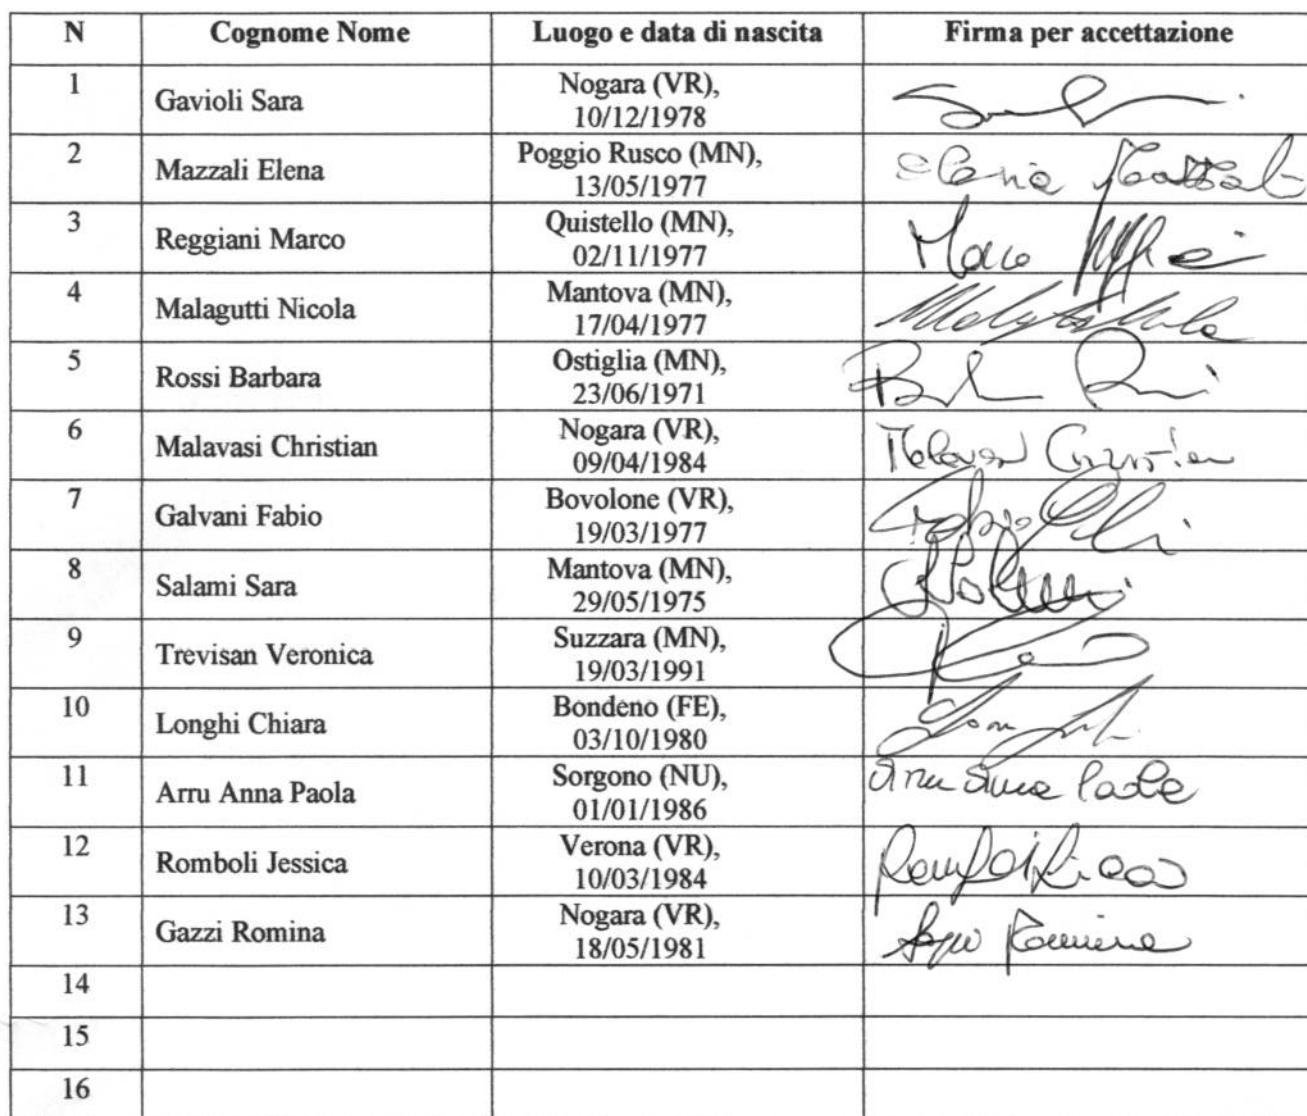 N Cognome Nome Luogo e data di nascita Firma per accettazione
1 Gavioli Sara Nogara (VR),
10/12/1978
2 Mazzali Elena Poggio Rusco (MN),
13/05/1977
Elena Mazzali
3 Reggiani Marco Quistello (MN),
02/11/1977
Marco
4 Malagutti Nicola Mantova (MN),
17/04/1977
5 Rossi Barbara Ostiglia (MN),
23/06/1971
6 Malavasi Christian Nogara (VR),
09/04/1984
Malavasi Christian
7 Galvani Fabio Bovolone (VR),
19/03/1977
Fabio
8 Salami Sara Mantova (MN),
29/05/1975
9 Trevisan Veronica Suzzara (MN),
19/03/1991
10 Longhi Chiara Bondeno (FE),
03/10/1980
11 Arru Anna Paola Sorgono (NU),
01/01/1986
Arru Anna Paola
12 Romboli Jessica Verona (VR),
10/03/1984
13 Gazzi Romina Nogara (VR),
18/05/1981
Gazzi Romina
14
15
16